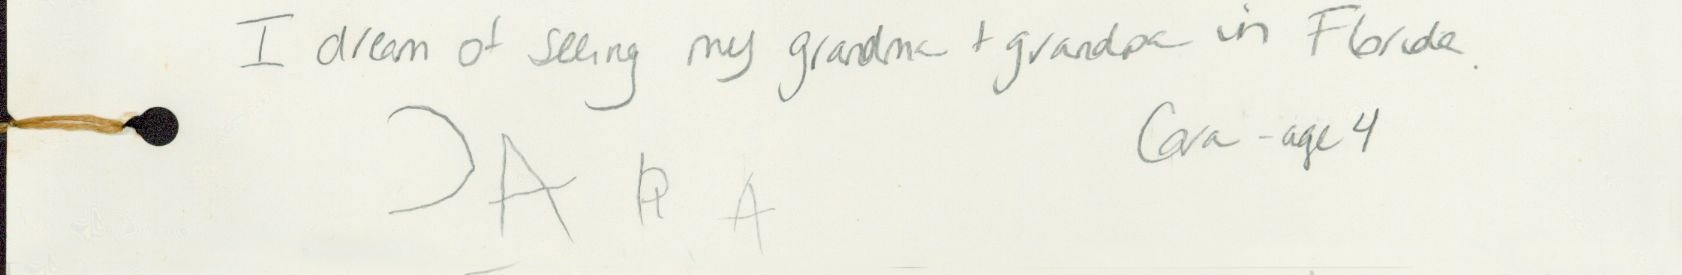 I dream of seeing my grandma + grandpa in Florida.
Cara - age 4
CARA